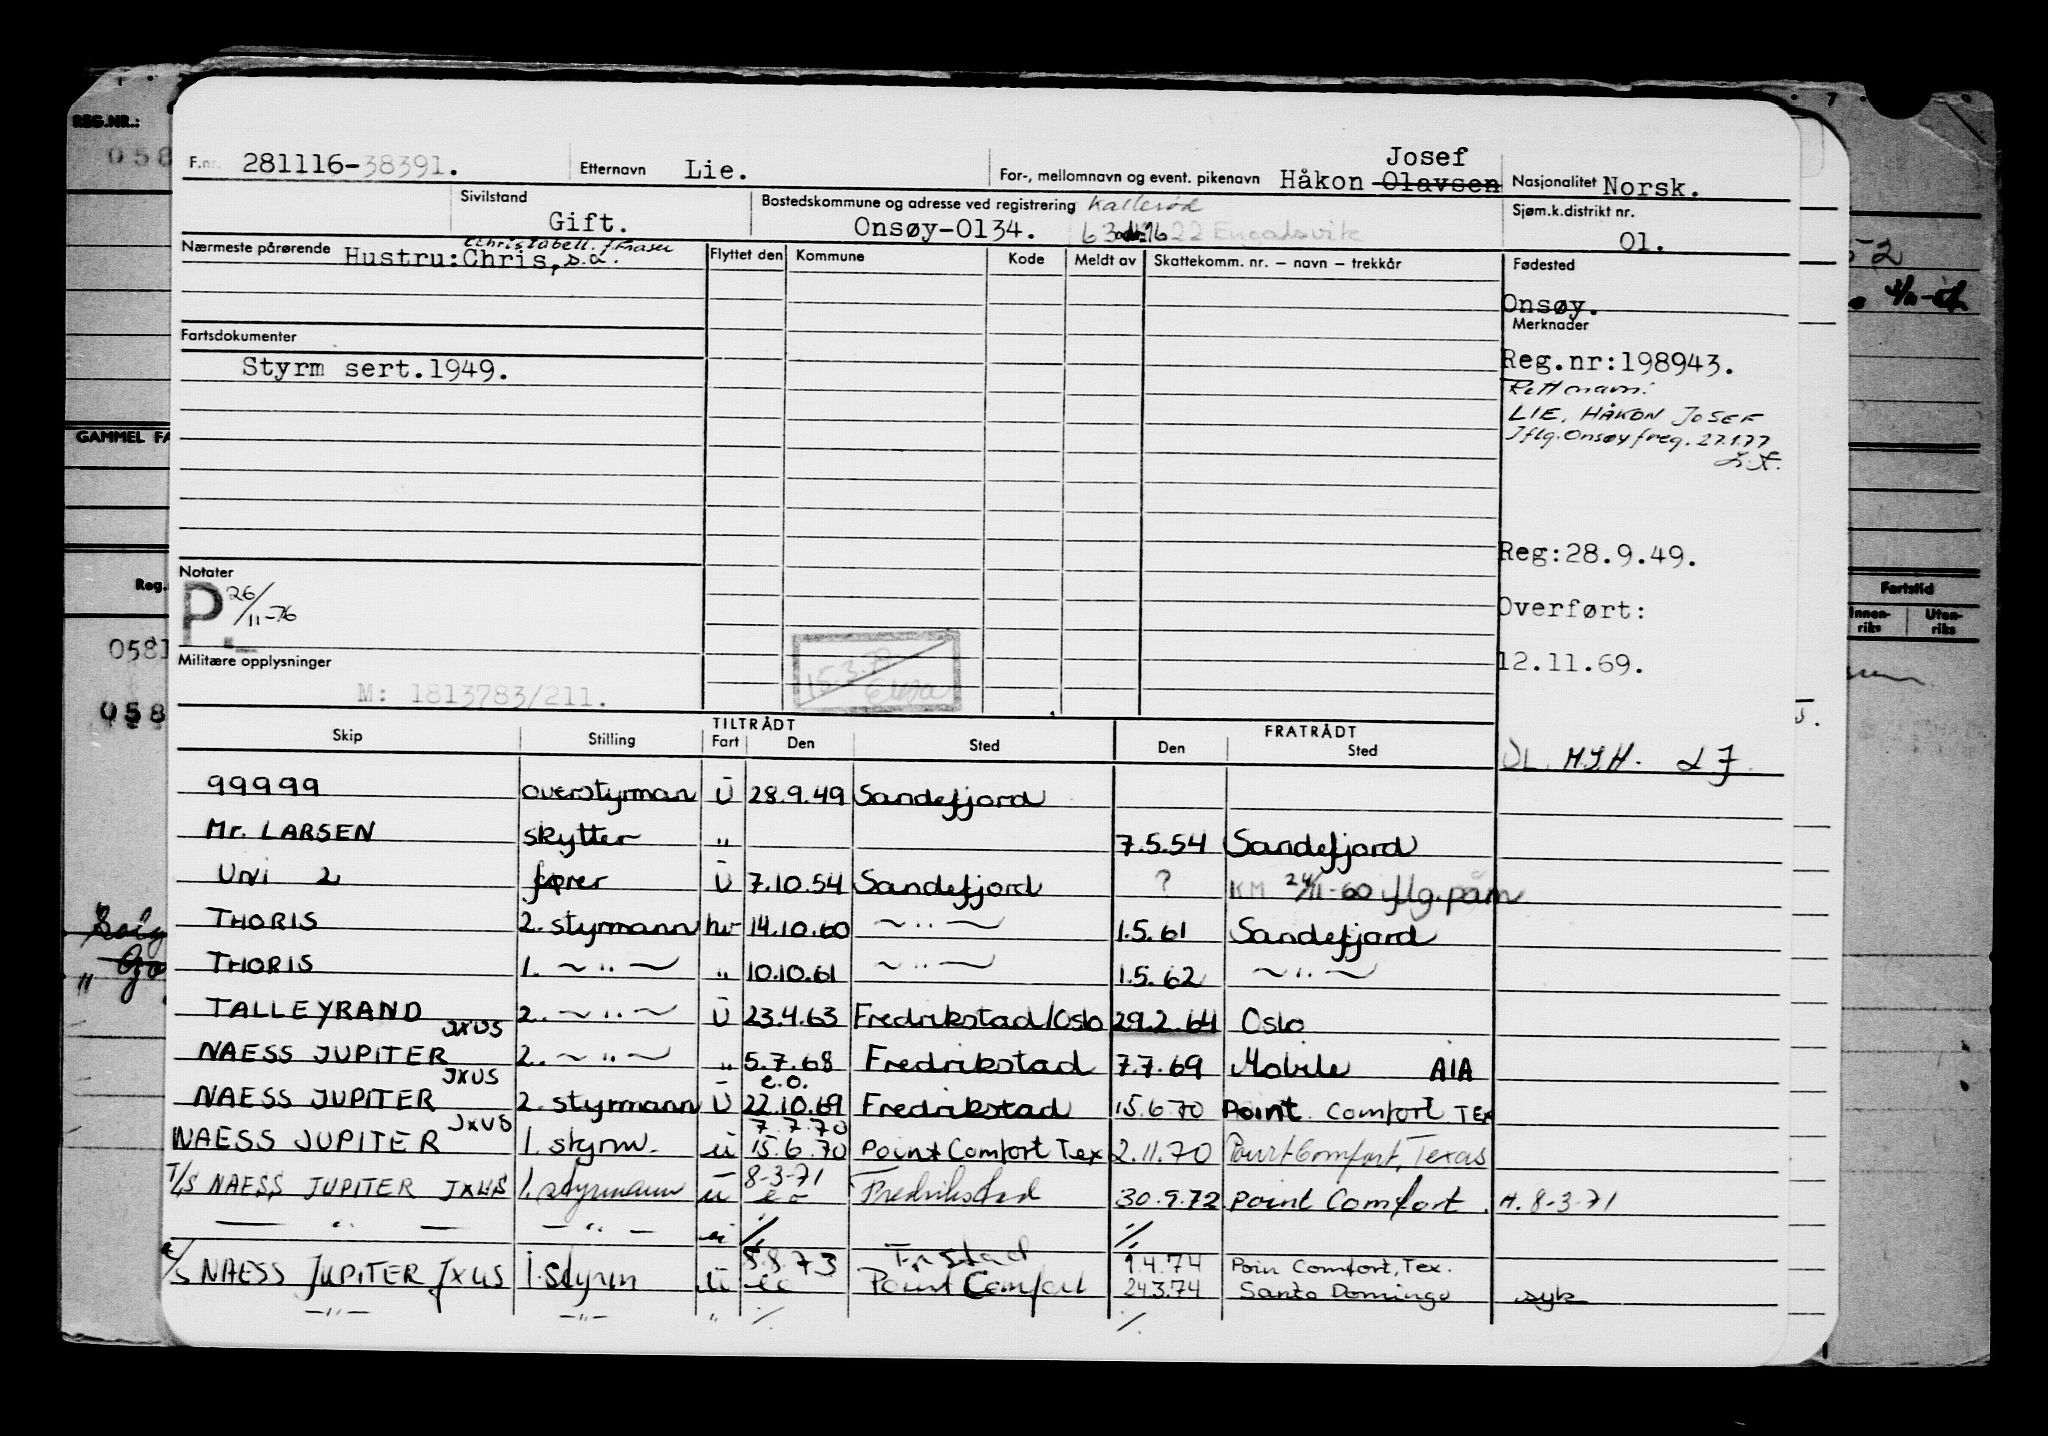 REG.NR.:
058
F.nr. 281116-38391. Etternavn Lie. For-, mellomnavn og event. pikenavn Håkon Josef Olavsen Nasjonalitet Norsk.
Sivilstand Gift. Bostedskommune og adresse ved registrering Onsøy-0134. Kallerød 1622 Engalsvik Sjøm.k.distrikt nr. 01.
Nærmeste pårørende Hustru: Chris, s.a. Christabell. f. Fraser
Flyttet den Kommune Kode Meldt av Skattekomm. nr. – navn – trekkår
Fødested
Onsøy.
Merknader
Fartsdokumenter
Styrm sert.1949.
Reg.nr:198943.
Rett navn:
LIE, HÅKON JOSEF
Iflg. Onsøy freg. 27.1.77
GAMMEL FA
Reg:28.9.49.
Overført:
12.11.69.
Notater
P. 26/11-76
Militære opplysninger
M: 1813783/211.
15.3.77
Reg.
0581
058
Fartstid
Innen-riks Uten-riks
TILTRÅDT FRATRÅDT
Skip Stilling Fart Den Sted Den Sted
99999 overstyrman ū 28.9.49 Sandefjord
Mr. LARSEN skytter " 7.5.54 Sandefjord
Uni 2 fører ū 7.10.54 Sandefjord ? KM 24/11-60 iflg. påm
THORIS 2. styrmann hv 14.10.60 ~ " ~ 1.5.61 Sandefjord
THORIS 1. ~ " ~ " 10.10.61 ~ " ~ 1.5.62 ~ " ~
TALLEYRAND 2. ~ " ~ ū 23.4.63 Fredrikstad/Oslo 29.2.64 Oslo
NAESS JUPITER JXUS 2. ~ " ~ " 5.7.68 Fredrikstad 7.7.69 Mobile AIA
NAESS JUPITER JXUS 2. styrmann ū e.o. 22.10.69 Fredrikstad 15.6.70 Point Comfort TEX
NAESS JUPITER JXUS 1. styrm. ū 7.7.70 15.6.70 Point Comfort Tex 2.11.70 Point Comfort, Texas
T/S NAESS JUPITER JXUS 1. styrmann ū 8-3-71 eo Fredrikstad 30.9.72 Point Comfort. A. 8-3-71
— " — — " — ū ·/. ·/.
NAESS JUPITER JXUS 1. styrm ū 5.8.73 eo Fr.stad Point Comfort 9.4.74 Poin Comfort, Tex.
24.3.74 Santo Domingo syk
—"— —"— " ·/. ·/.